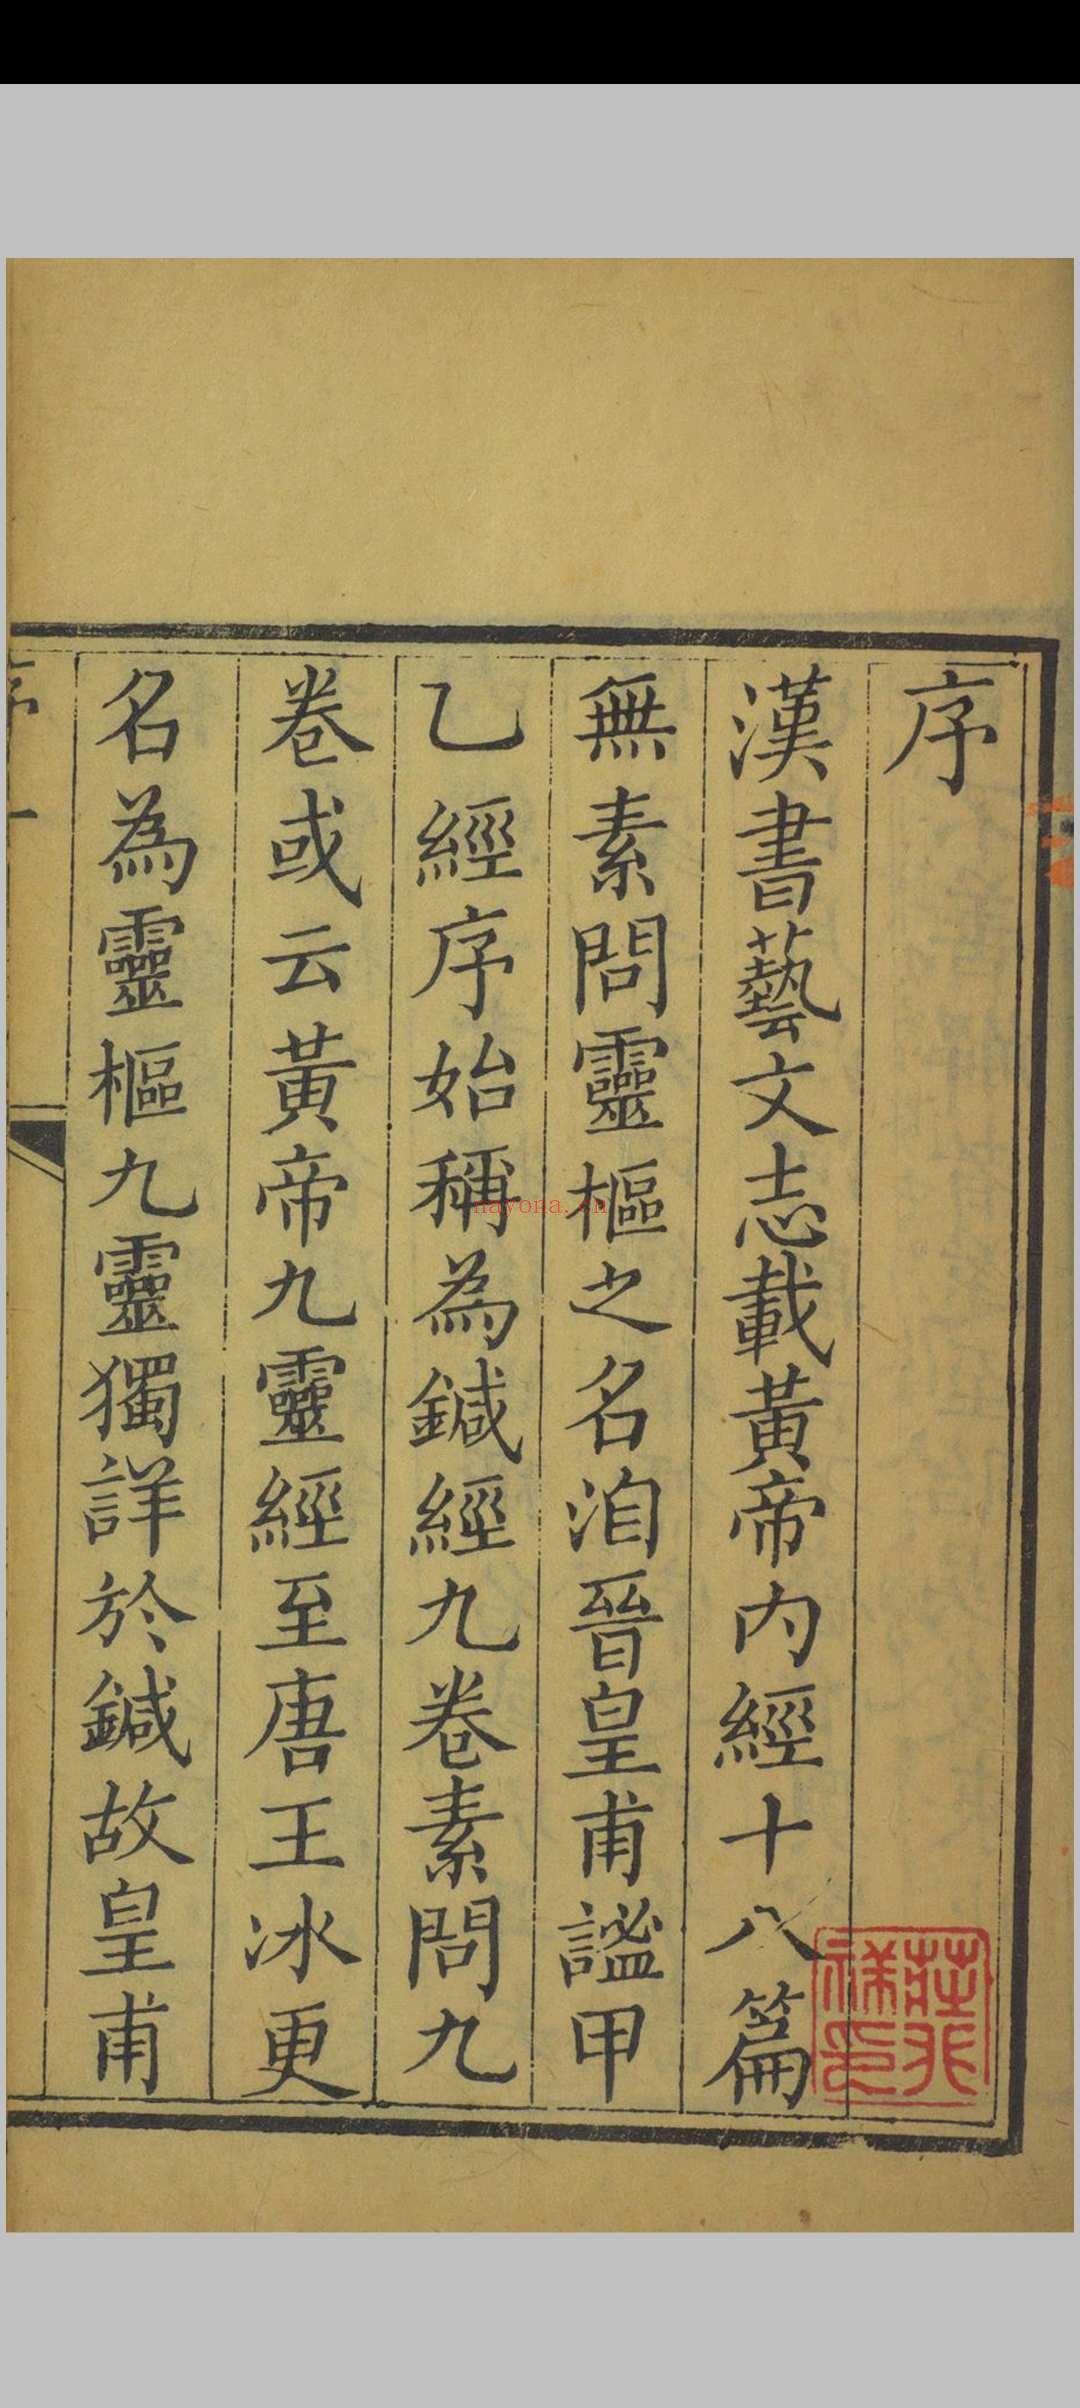 序
漢書藝文志載黃帝內經十八篇
無素問靈樞之名洎晉皇甫謐甲
乙經序始稱為鍼經九卷素問九
卷或云黃帝九靈經至唐王冰更
名為靈樞九靈獨詳於鍼故皇甫
序 一
nayona.cn